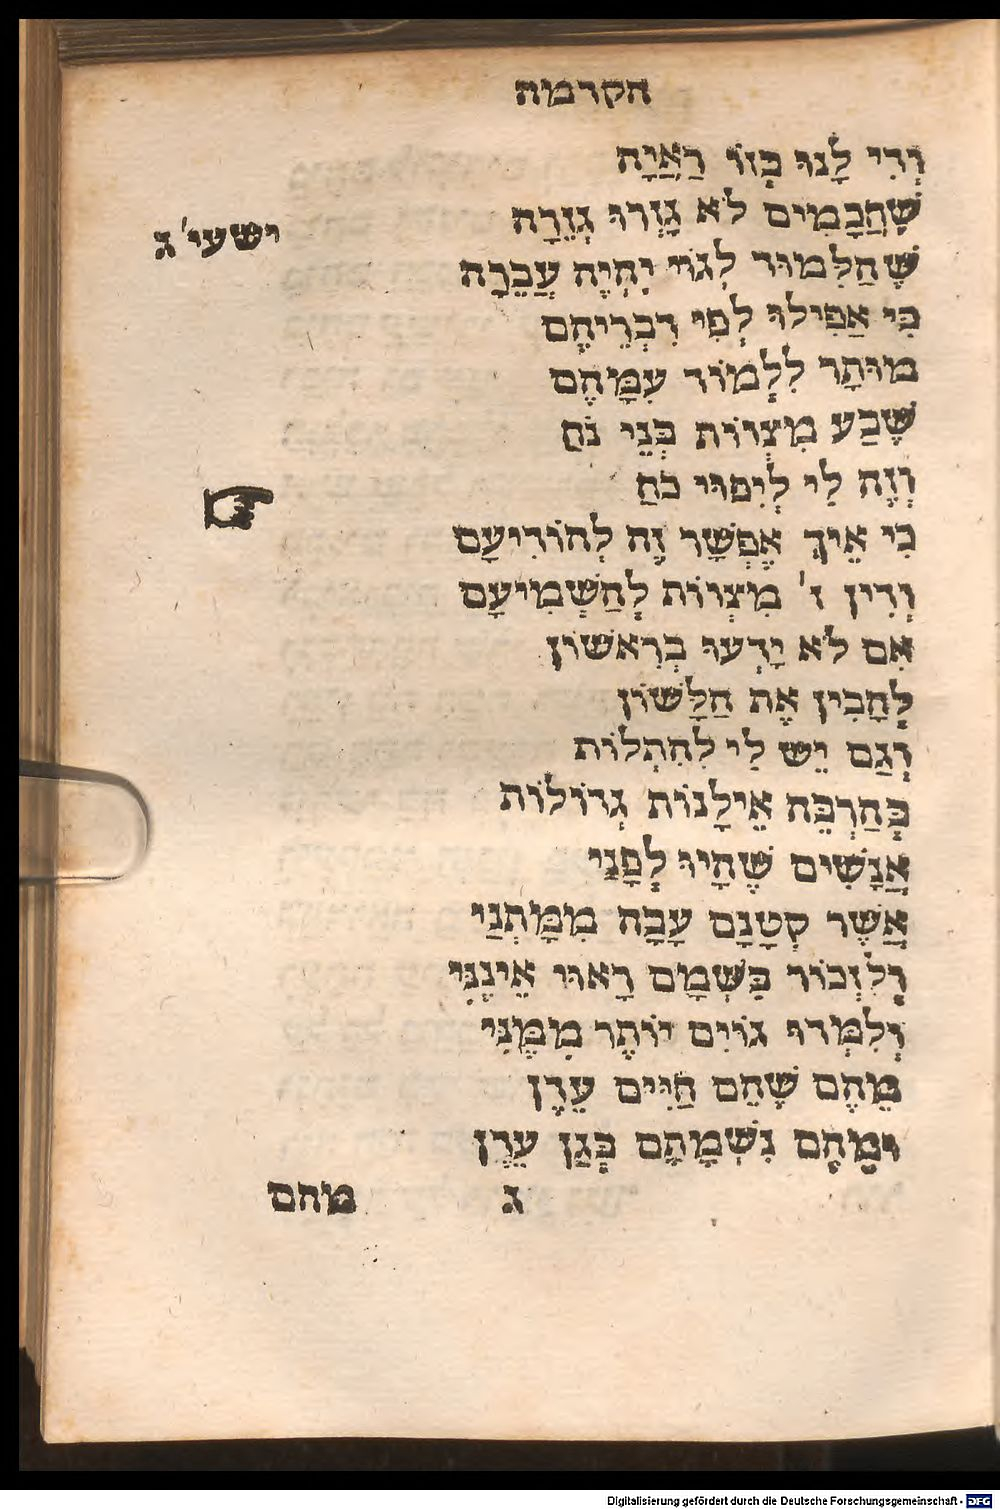 הקדמה
וְדִי לָנוּ בְּזוֹ רַאֲיָה
שֶׁחֲכָמִים לֹא גָּזְרוּ גְּזֵרָה
ישעי' ג
שֶׁהַלִּמּוּד לְגוֹי יִהְיֶה עֲבֵרָה
כִּי אֲפִילוּ לְפִי דִבְרֵיהֶם
מוּתָּר לִלְמוֹד עִמָּהֶם
שֶׁבַע מִצְווֹת בְּנֵי נֹחַ
וְזֶה לִי לְיִפּוּי כֹּחַ
☞
כִּי אֵיךְ אֶפְשָׁר זֶה לְהוֹדִיעָם
וְדִין ז' מִצְוֹות לְהַשְׁמִיעָם
אִם לֹא יָדְעוּ בְּרִאשׁוֹן
לְהָבִין אֶת הַלָּשׁוֹן
וְגַם יֵשׁ לִי לִהִתְלוֹת
בְּהַרְבֵּה אִילָנוֹת גְּדוֹלוֹת
אֲנָשִׁים שֶׁהָיוּ לְפָנַי
אֲשֶׁר קְטָנָם עָבָה מִמָּתְנַי
וְלִזְכּוֹר בְּשֵׁמָם רָאוּי אֵינֶנִּי
וְלִמְּדוּ גוֹיִם יוֹתֶר מִמֶּנִּי
מֵהֶם שֶׁהֵם חַיִּים עֲדֶן
וּמֵהֶם נִשְׁמָתָם בְּגַן עֵדֶן
ג
מהם
Digitalisierung gefördert durch die Deutsche Forschungsgemeinschaft - DFG